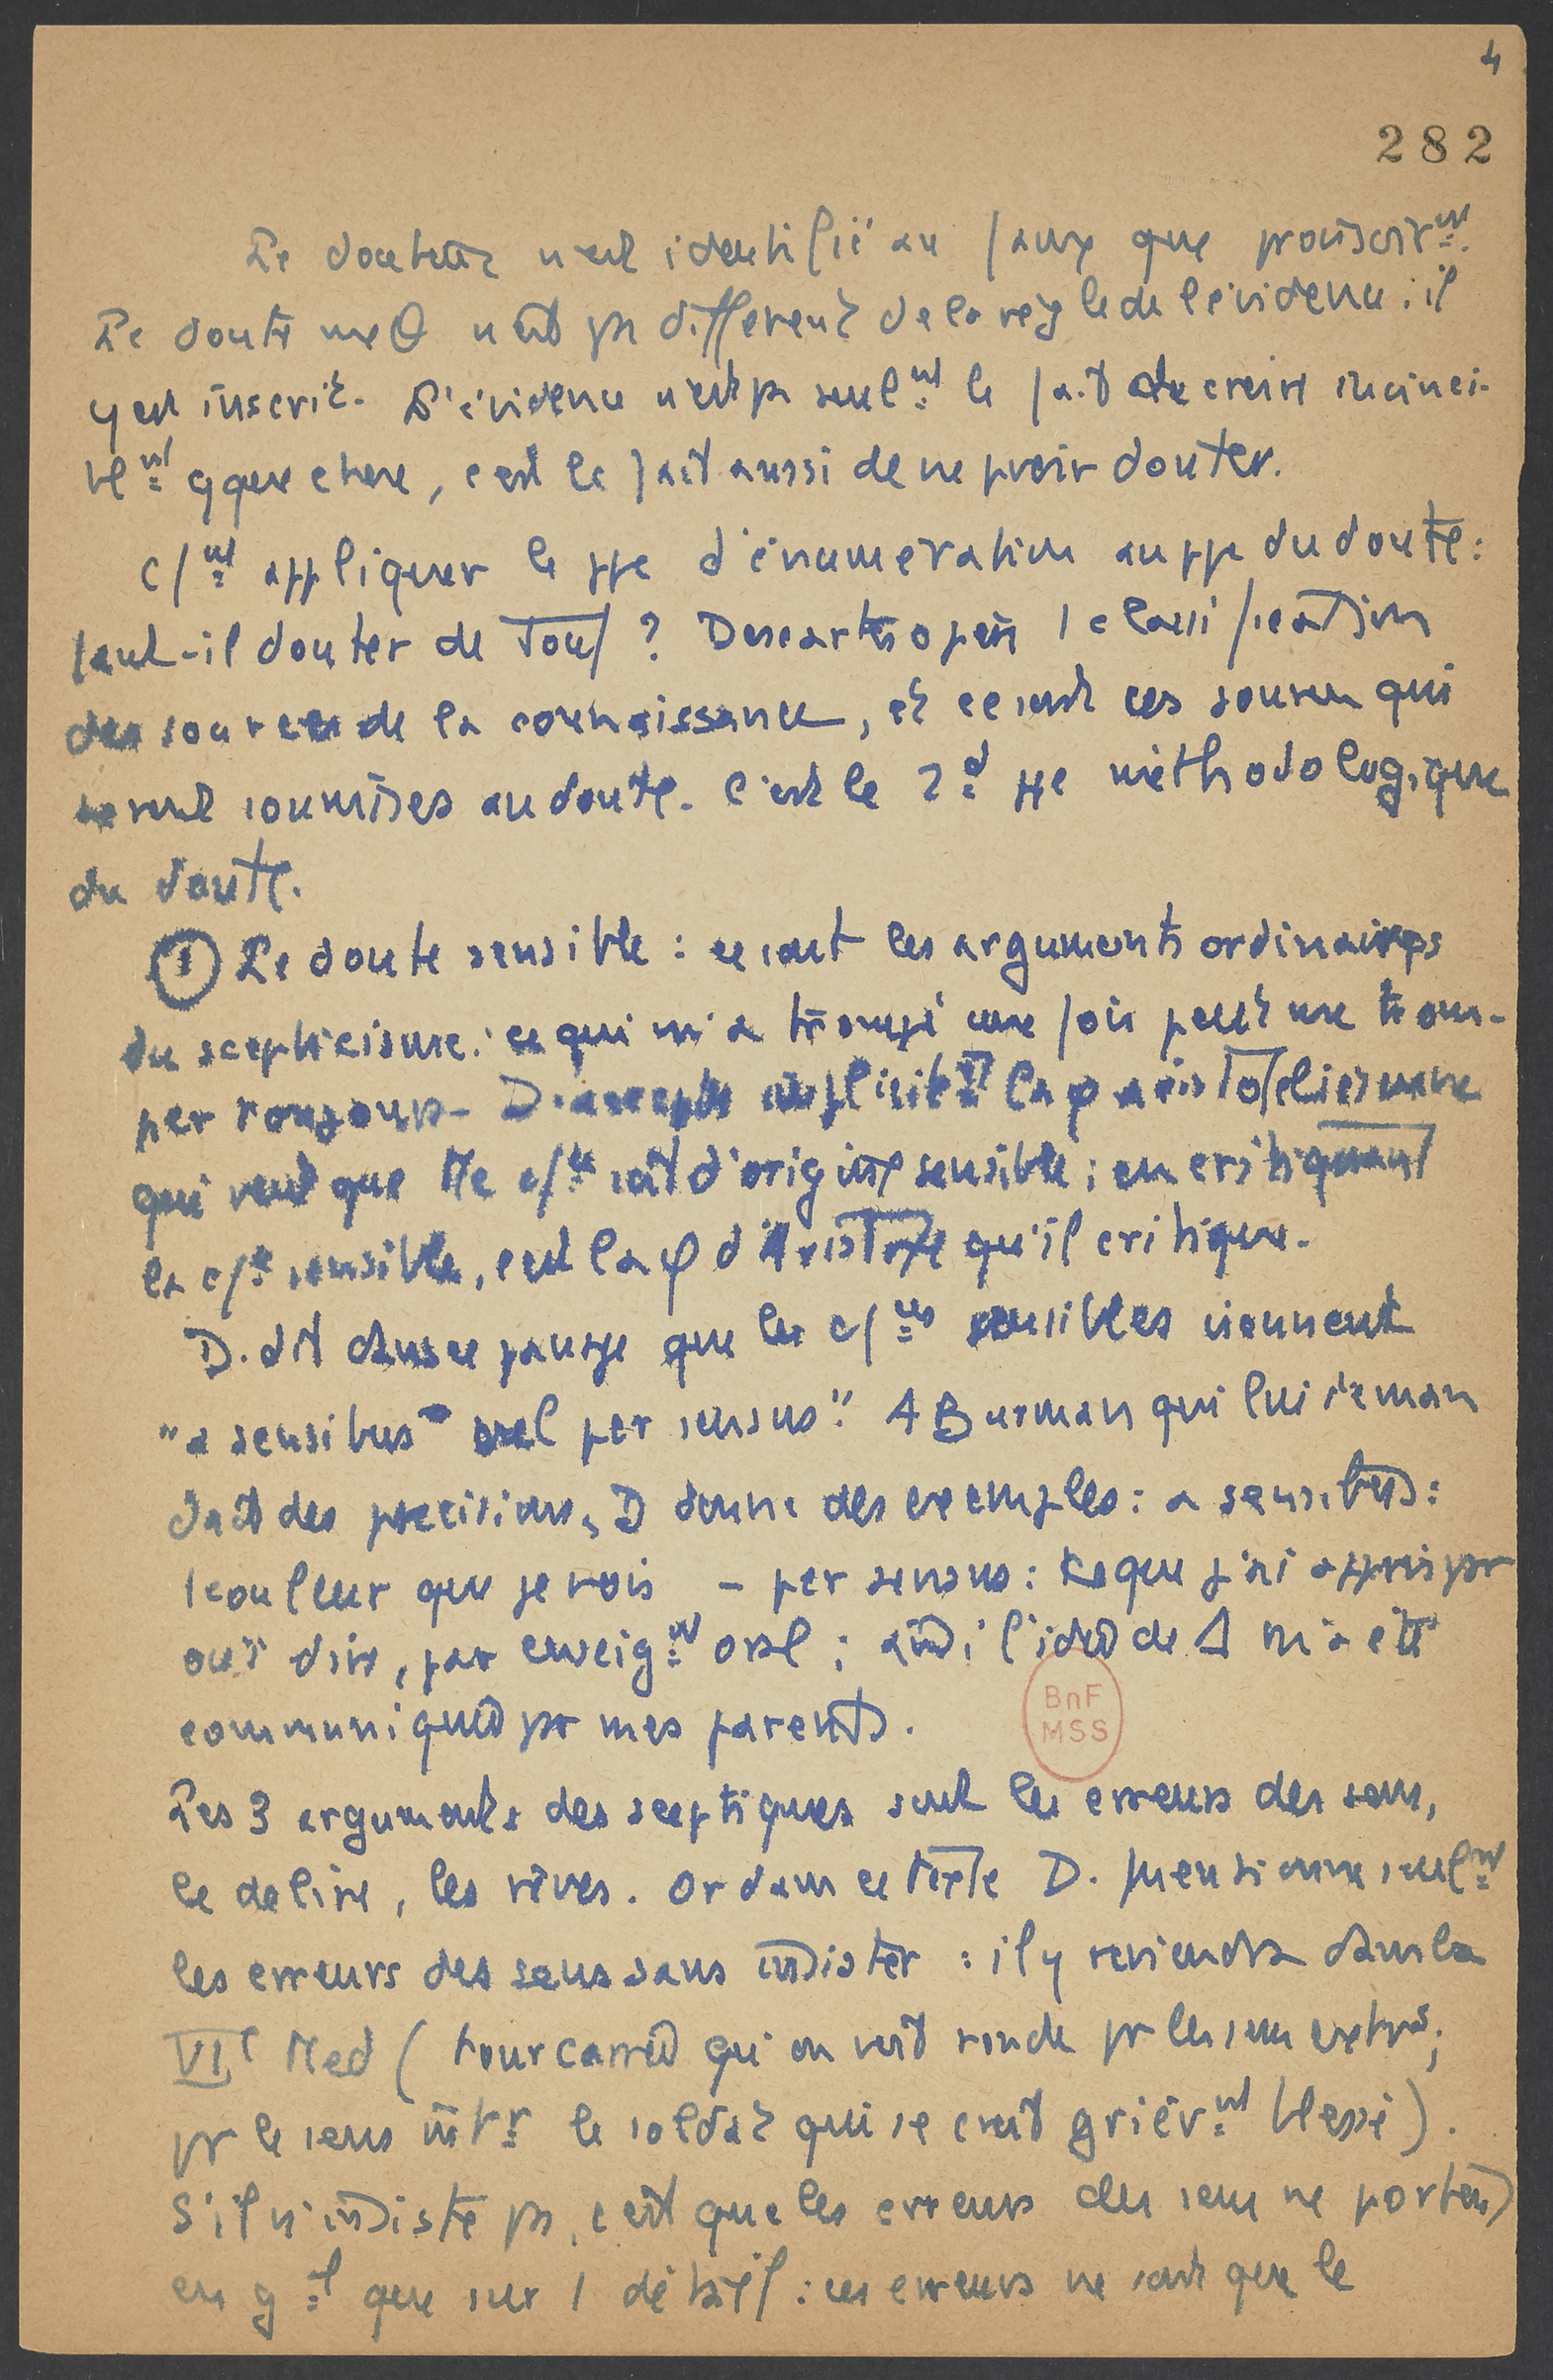 4
282
Le douteux n'est identifié au faux que provisoirmt.
Le doute meθ n'est ps différent de la règle de l'évidence : il
y est inscrit. L'évidence n'est ps seulmt le fait de croire invinci-
blmt qque chose, c'est le fait aussi de ne pvoir douter.
Cfmt appliquer le ppe d'énumération au ppe du doute :
faut-il douter de tout ? Descartes opère 1 classification
des sources de la connaissance, et ce sont ces sources qui
seront soumises au doute. C'est le 2d ppe méthodologique
du doute.
① Le doute sensible : ce sont les arguments ordinaires
du scepticisme : ce qui m'a trompé une fois peut me trom-
per toujours - D. accepte implicitmt la φ aristotélicienne
qui veut que tte cfce soit d'origine sensible ; en critiquant
la cfce sensible, c'est la φ d'Aristote qu'il critique.
D. dit dans ce passage que les cfces sensibles viennent
"a sensibus vel per sensus". A Burman qui lui deman
dait des précisions, D donne des exemples : a sensibus :
1 couleur que je vois - per sensus : ce que j'ai appris par
ouï dire, par enseigmt oral ; ainsi l'idée de Δ m'a été
communiquée pr mes parents.
BnF
MSS
Les 3 arguments des sceptiques sont les erreurs des sens,
le délire, les rêves. Or dans ce texte D. mentionne seulmt
les erreurs des sens sans insister : il y reviendra dans la
VIe Med (tour carrée qu'on voit ronde pr les sens extrs ;
pr le sens intr le soldat qui se croit grièvmt blessé).
S'il n'insiste ps, c'est que les erreurs des sens ne portent
en gal que sur 1 détail : ces erreurs ne sont que le